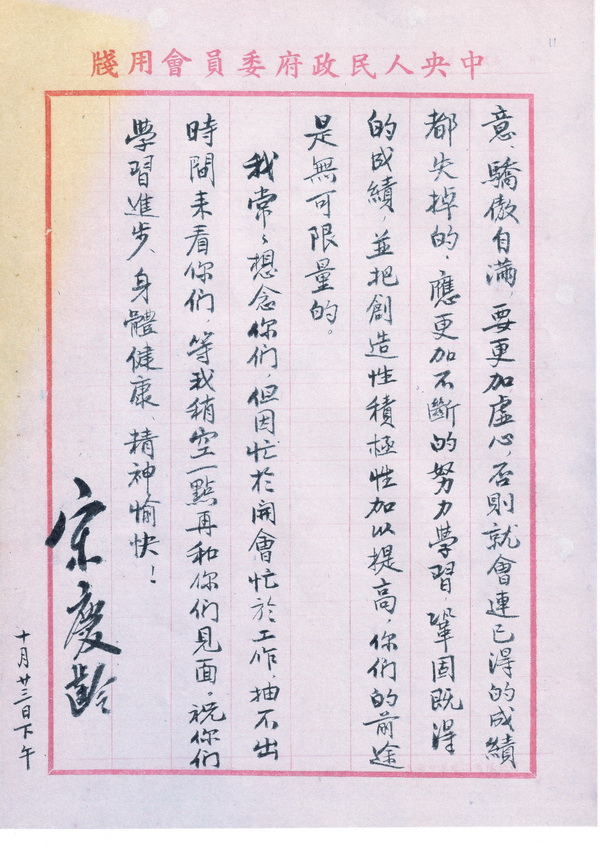 牋用會員委府政民人央中
意、驕傲自滿，要更加虛心，否則就會連已得的成績
都失掉的，應更加不斷的努力學習，鞏固既得
的成績，並把創造性積極性加以提高，你們的前途
是無可限量的。
我常、想念你們，但因忙於開會忙於工作，抽不出
時間来看你們，等我稍空一點再和你們見面。祝你們
學習進步、身體健康、精神愉快！
宋慶齡
十月廿三日下午